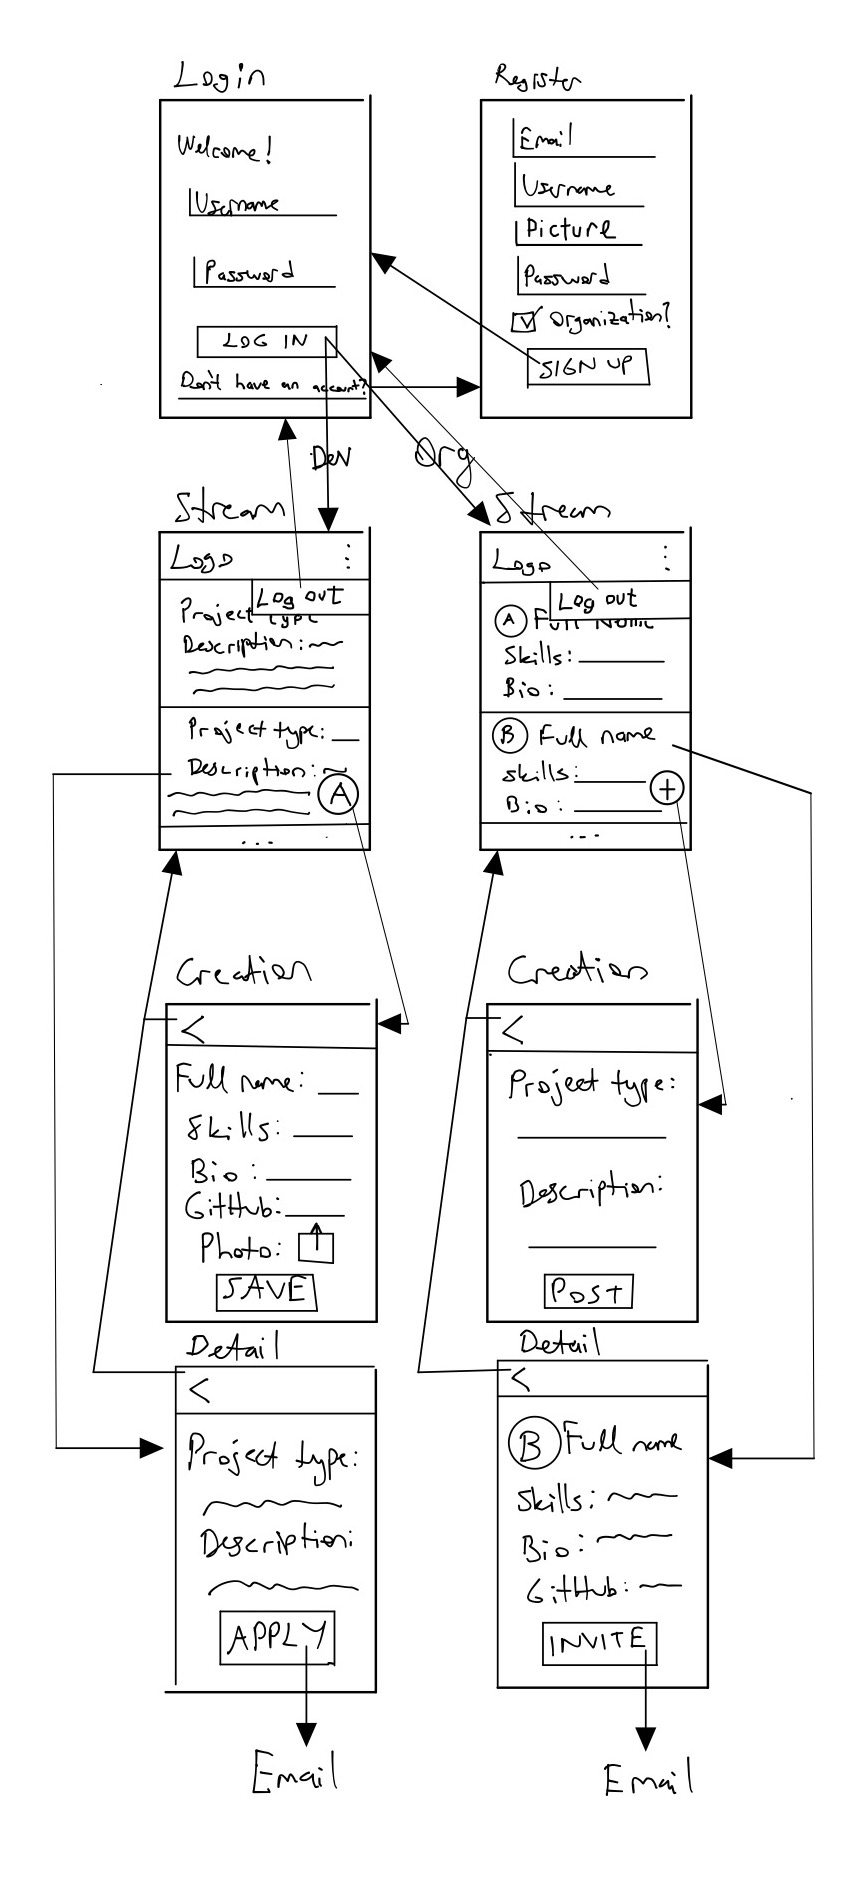 Login
Welcome!
Username
Password
LOG IN
Don't have an account?
Register
Email
Username
Picture
Password
Organization?
SIGN UP
Dev
Org
Stream
Logo
Log out
Project type
Description:
Project type:
Description:
A
...
Stream
Logo
Log out
A Full Name
Skills:
Bio:
B Full name
Skills:
+
Bio:
...
Creation
<
Full name:
Skills:
Bio:
GitHub:
Photo:
SAVE
Creation
<
Project type:
Description:
POST
Detail
<
Project type:
Description:
APPLY
Email
Detail
<
B Full name
Skills:
Bio:
GitHub:
INVITE
Email